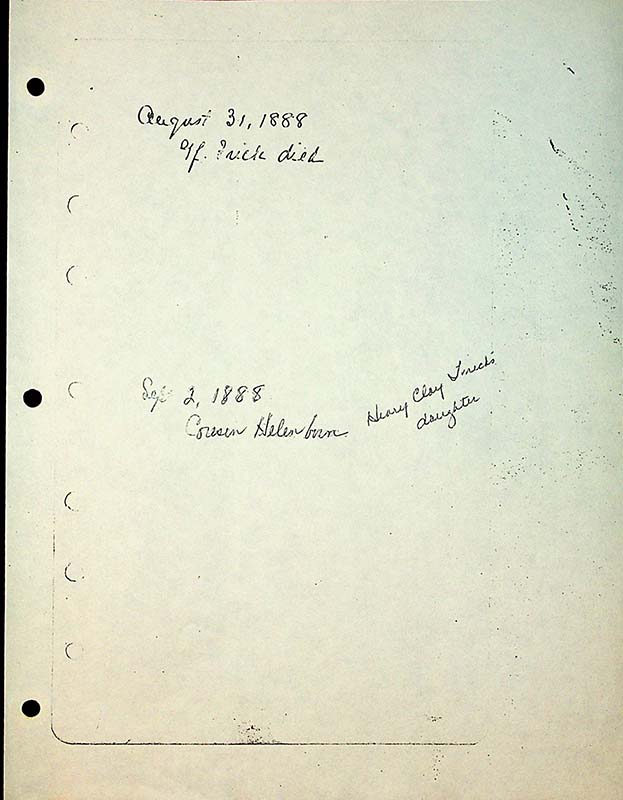 August 31, 1888
Frick died
Sep 2, 1888
Cousin Helen born
Henry Clay Frick's
daughter